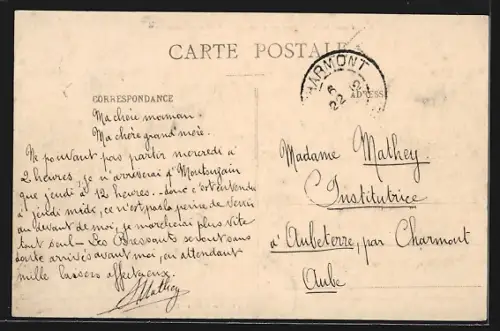 CARTE POSTALE
CHARMONT
6
22
CORRESPONDANCE
ADRESSE
Ma chère maman.
Ma chère grand'mère.
Ne pouvant pas partir mercredi à
2 heures, je n'arriverai d'Montsuzain
que jeudi à 12 heures. - Donc c'est entendu
à jeudi midi, ce n'est pas la peine de venir
au devant de moi, je marcherai plus vite
tout seul - Les Bressants seront sans
doute arrivés avant moi, en attendant
mille baisers affectueux.
Mathey
Madame Mathey.
Institutrice
à Aubeterre, par Charmont
Aube